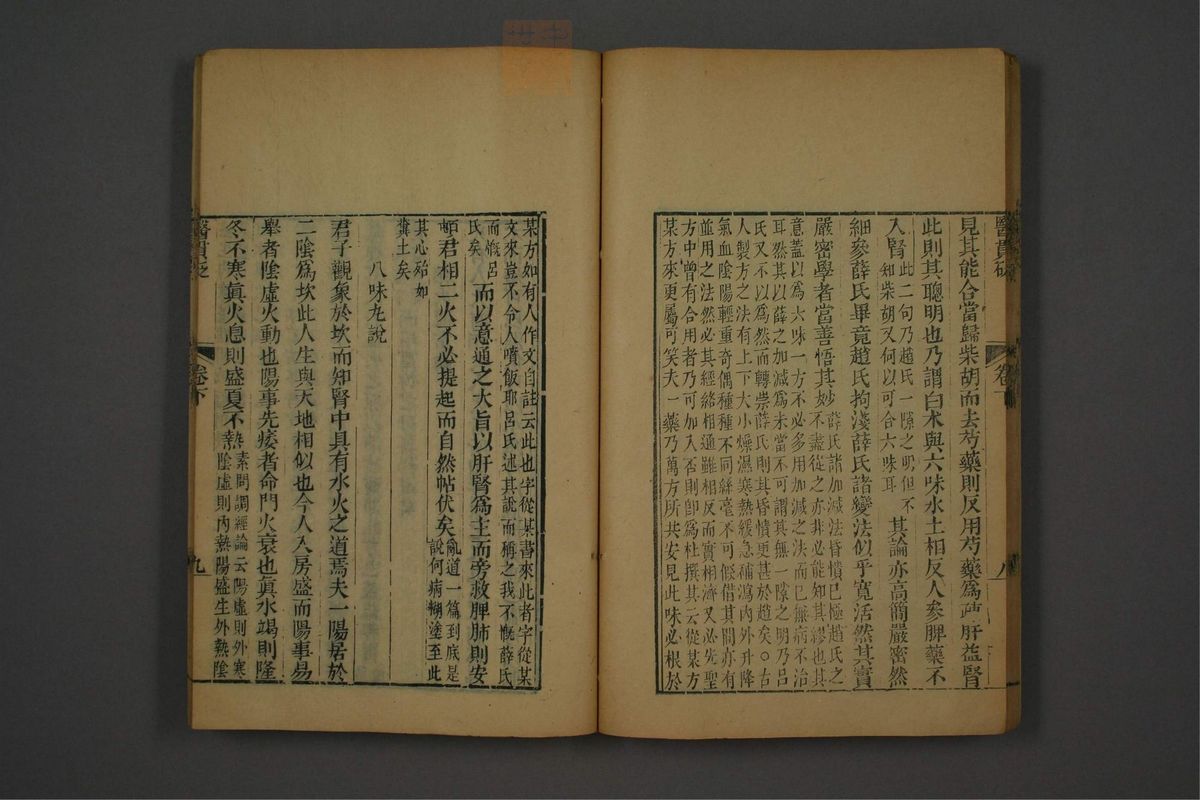 醫貫砭
卷下
八
見其能合當歸柴胡而去芍藥則反用芍藥為瀉肝益腎
此則其聰明也乃謂白朮與六味水土相反人參脾藥不
入腎
此二句乃趙氏一隙之明但不
知柴胡又何以可合六味耳
其論亦高簡嚴密然
細參薛氏畢竟趙氏拘淺薛氏諸變法似乎寬活然其實
嚴密學者當善悟其妙
薛氏諸加減法昏憒已極趙氏之
不盡從之亦非必能知其繆也其
意蓋以為六味一方不必多用加減之法而已無病不治
耳然其以薛之加減為未當不可謂其無一隙之明乃呂
氏又不以為然而轉崇薛氏則其昏憒更甚於趙矣○古
人製方之法有上下大小燥濕寒熱緩急補瀉內外升降
氣血陰陽輕重奇偶種種不同絲毫不可假借其間亦有
並用之法然必其經絡相通雖相反而實相濟又必先聖
方中曾有合用者乃可加入否則即為杜撰其云從某方
某方來更屬可笑夫一藥乃萬方所共安見此味必根於
某方如有人作文自註云此也字從某書來此者字從某
文來豈不令人噴飯耶呂氏述其說而稱之我不慨薛氏
而慨呂
氏矣
而以意通之大旨以肝腎為主而旁救脾肺則安
頓君相二火不必提起而自然帖伏矣
亂道一篇到底是
說何病糊塗至此
其心殆如
糞土矣
八味丸說
君子觀象於坎而知腎中具有水火之道焉夫一陽居於
二陰為坎此人生與天地相似也今人入房盛而陽事易
舉者陰虛火動也陽事先痿者命門火衰也真水竭則隆
冬不寒真火息則盛夏不熱
素問調經論云陽虛則外寒
陰虛則內熱陽盛生外熱陰
醫貫砭
卷下
九